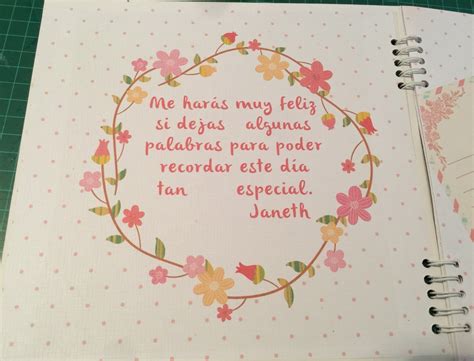 Me harás muy feliz
si dejas algunas
palabras para poder
recordar este día
tan especial.
Janeth